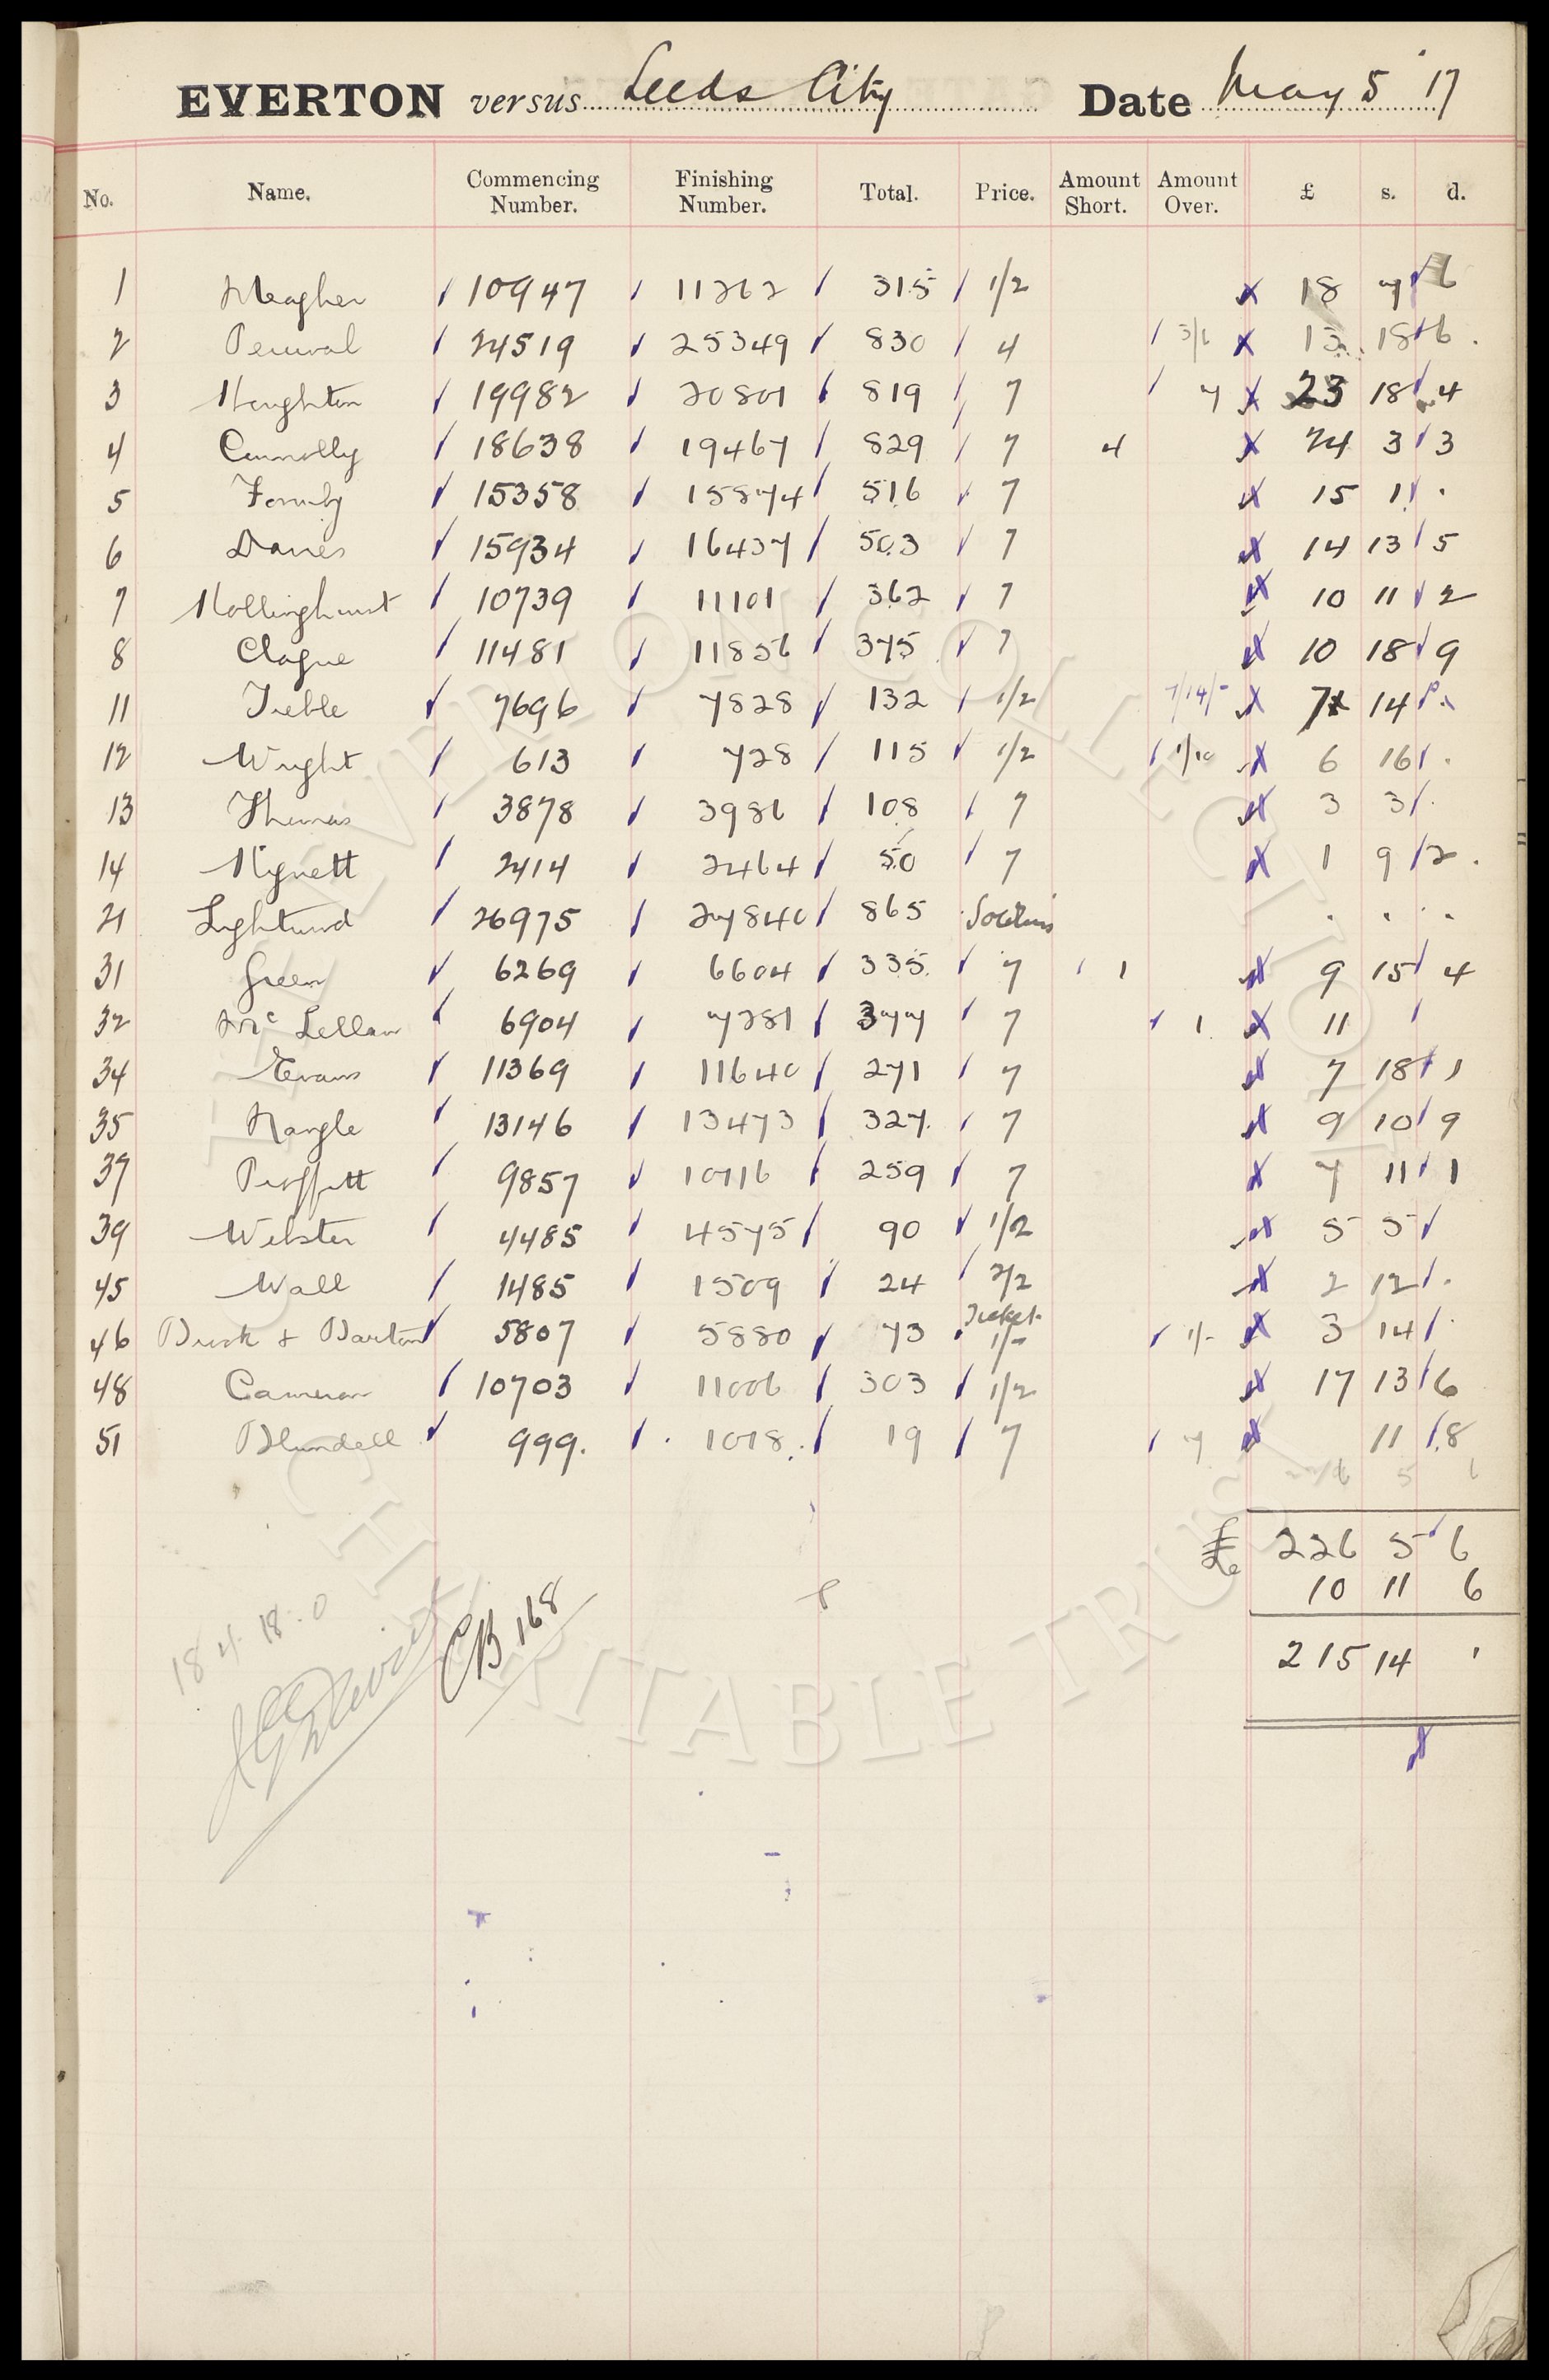 EVERTON versus Leeds City Date May 5 '17
No. Name. Commencing Number. Finishing Number. Total. Price. Amount Short. Amount Over. £ s. d.
1 Meagher 10947 11262 315 1/2 18 7 6
2 Percival 24519 25349 830 4 3/6 13 18 6
3 Houghton 19982 20801 819 7 7 23 18 4
4 Connolly 18638 19467 829 7 4 24 3 3
5 Formby 15358 15874 516 7 15 1 .
6 Davies 15934 16437 503 7 14 13 5
7 Hollinghurst 10739 11101 362 7 10 11 2
8 Clague 11481 11856 375 7 10 18 9
11 Treble 7696 7828 132 1/2 7/14/- 7 14
12 Wright 613 728 115 1/2 1/10 6 16 .
13 Thomas 3878 3986 108 7 3 3 .
14 Hignett 2414 2464 50 7 1 9 2
21 Lightwood 26975 27840 865 . . .
31 Green 6269 6604 335 7 1 9 15 4
32 McLellan 6904 7281 377 7 1 11
34 Evans 11369 11640 271 7 7 18 1
35 Nangle 13146 13473 327 7 9 10 9
37 Proffitt 9857 10116 259 7 7 11 1
39 Webster 4485 4575 90 1/2 5 5
45 Wall 1485 1509 24 2/2 2 12 .
46 & Barton 5807 5880 73 Ticket 1/- 1/- 3 14 .
48 Cameron 10703 11006 303 1/2 17 13 6
51 Blundell 999 1018 19 7 7 11 8
£ 226 5 6
10 11 6
215 14 '
184.18.0
CB 168
THE EVERTON COLLECTION CHARITABLE TRUST